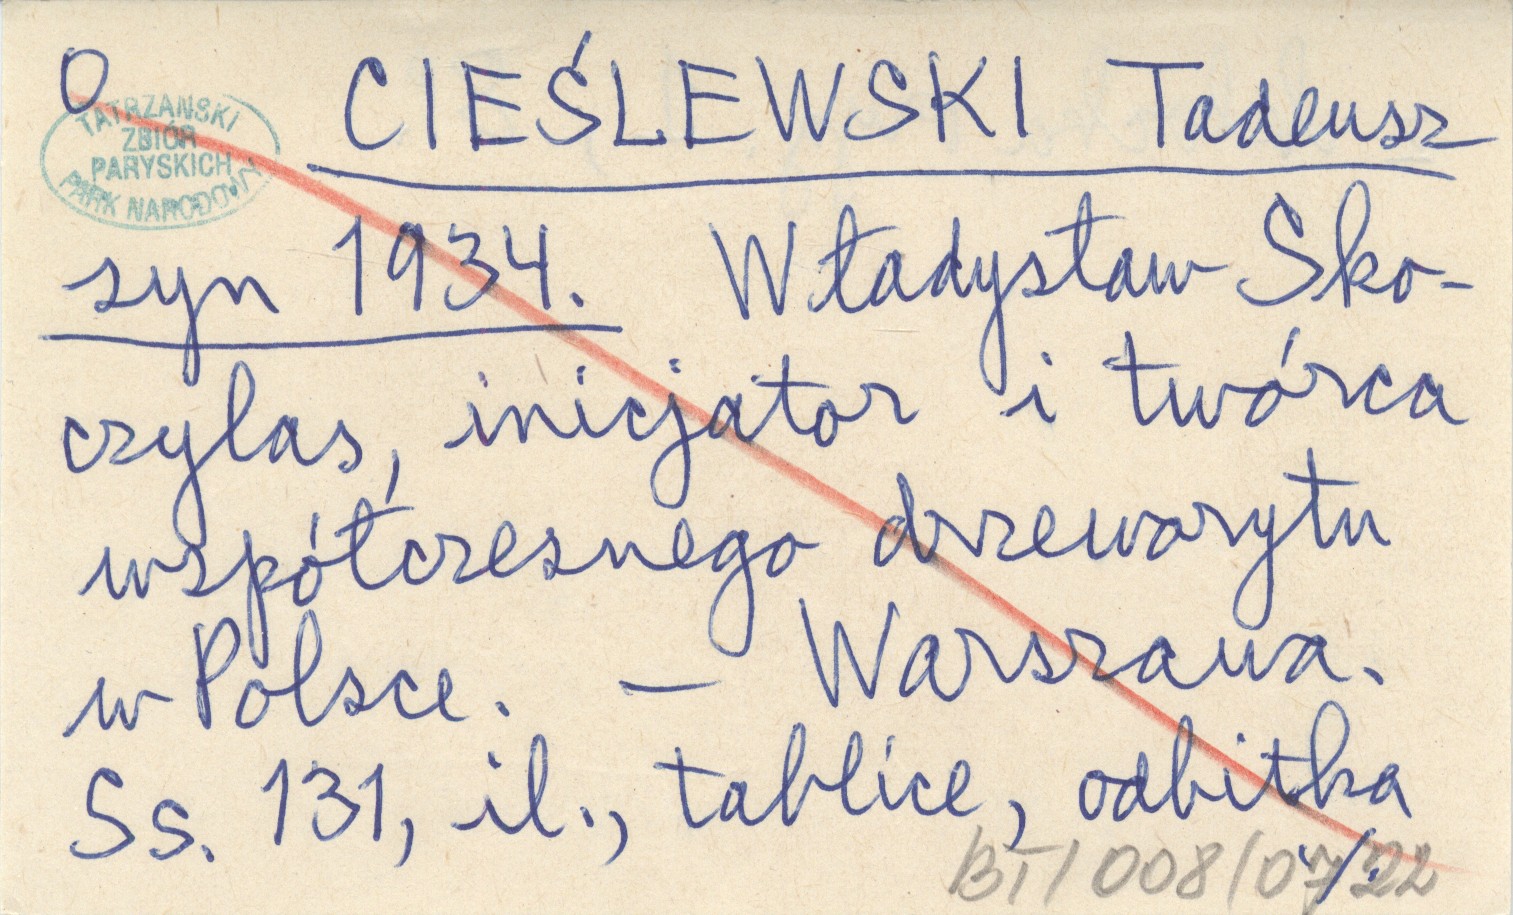 O
TATRZAŃSKI
ZBIÓR
PARYSKICH
PARK NARODOWY
CIEŚLEWSKI Tadeusz
syn 1934. Władysław Sko-
czylas, inicjator i twórca
współczesnego drzeworytu
w Polsce. — Warszawa.
Ss. 131, il., tablice, odbitka
./.
BT/008/07/22